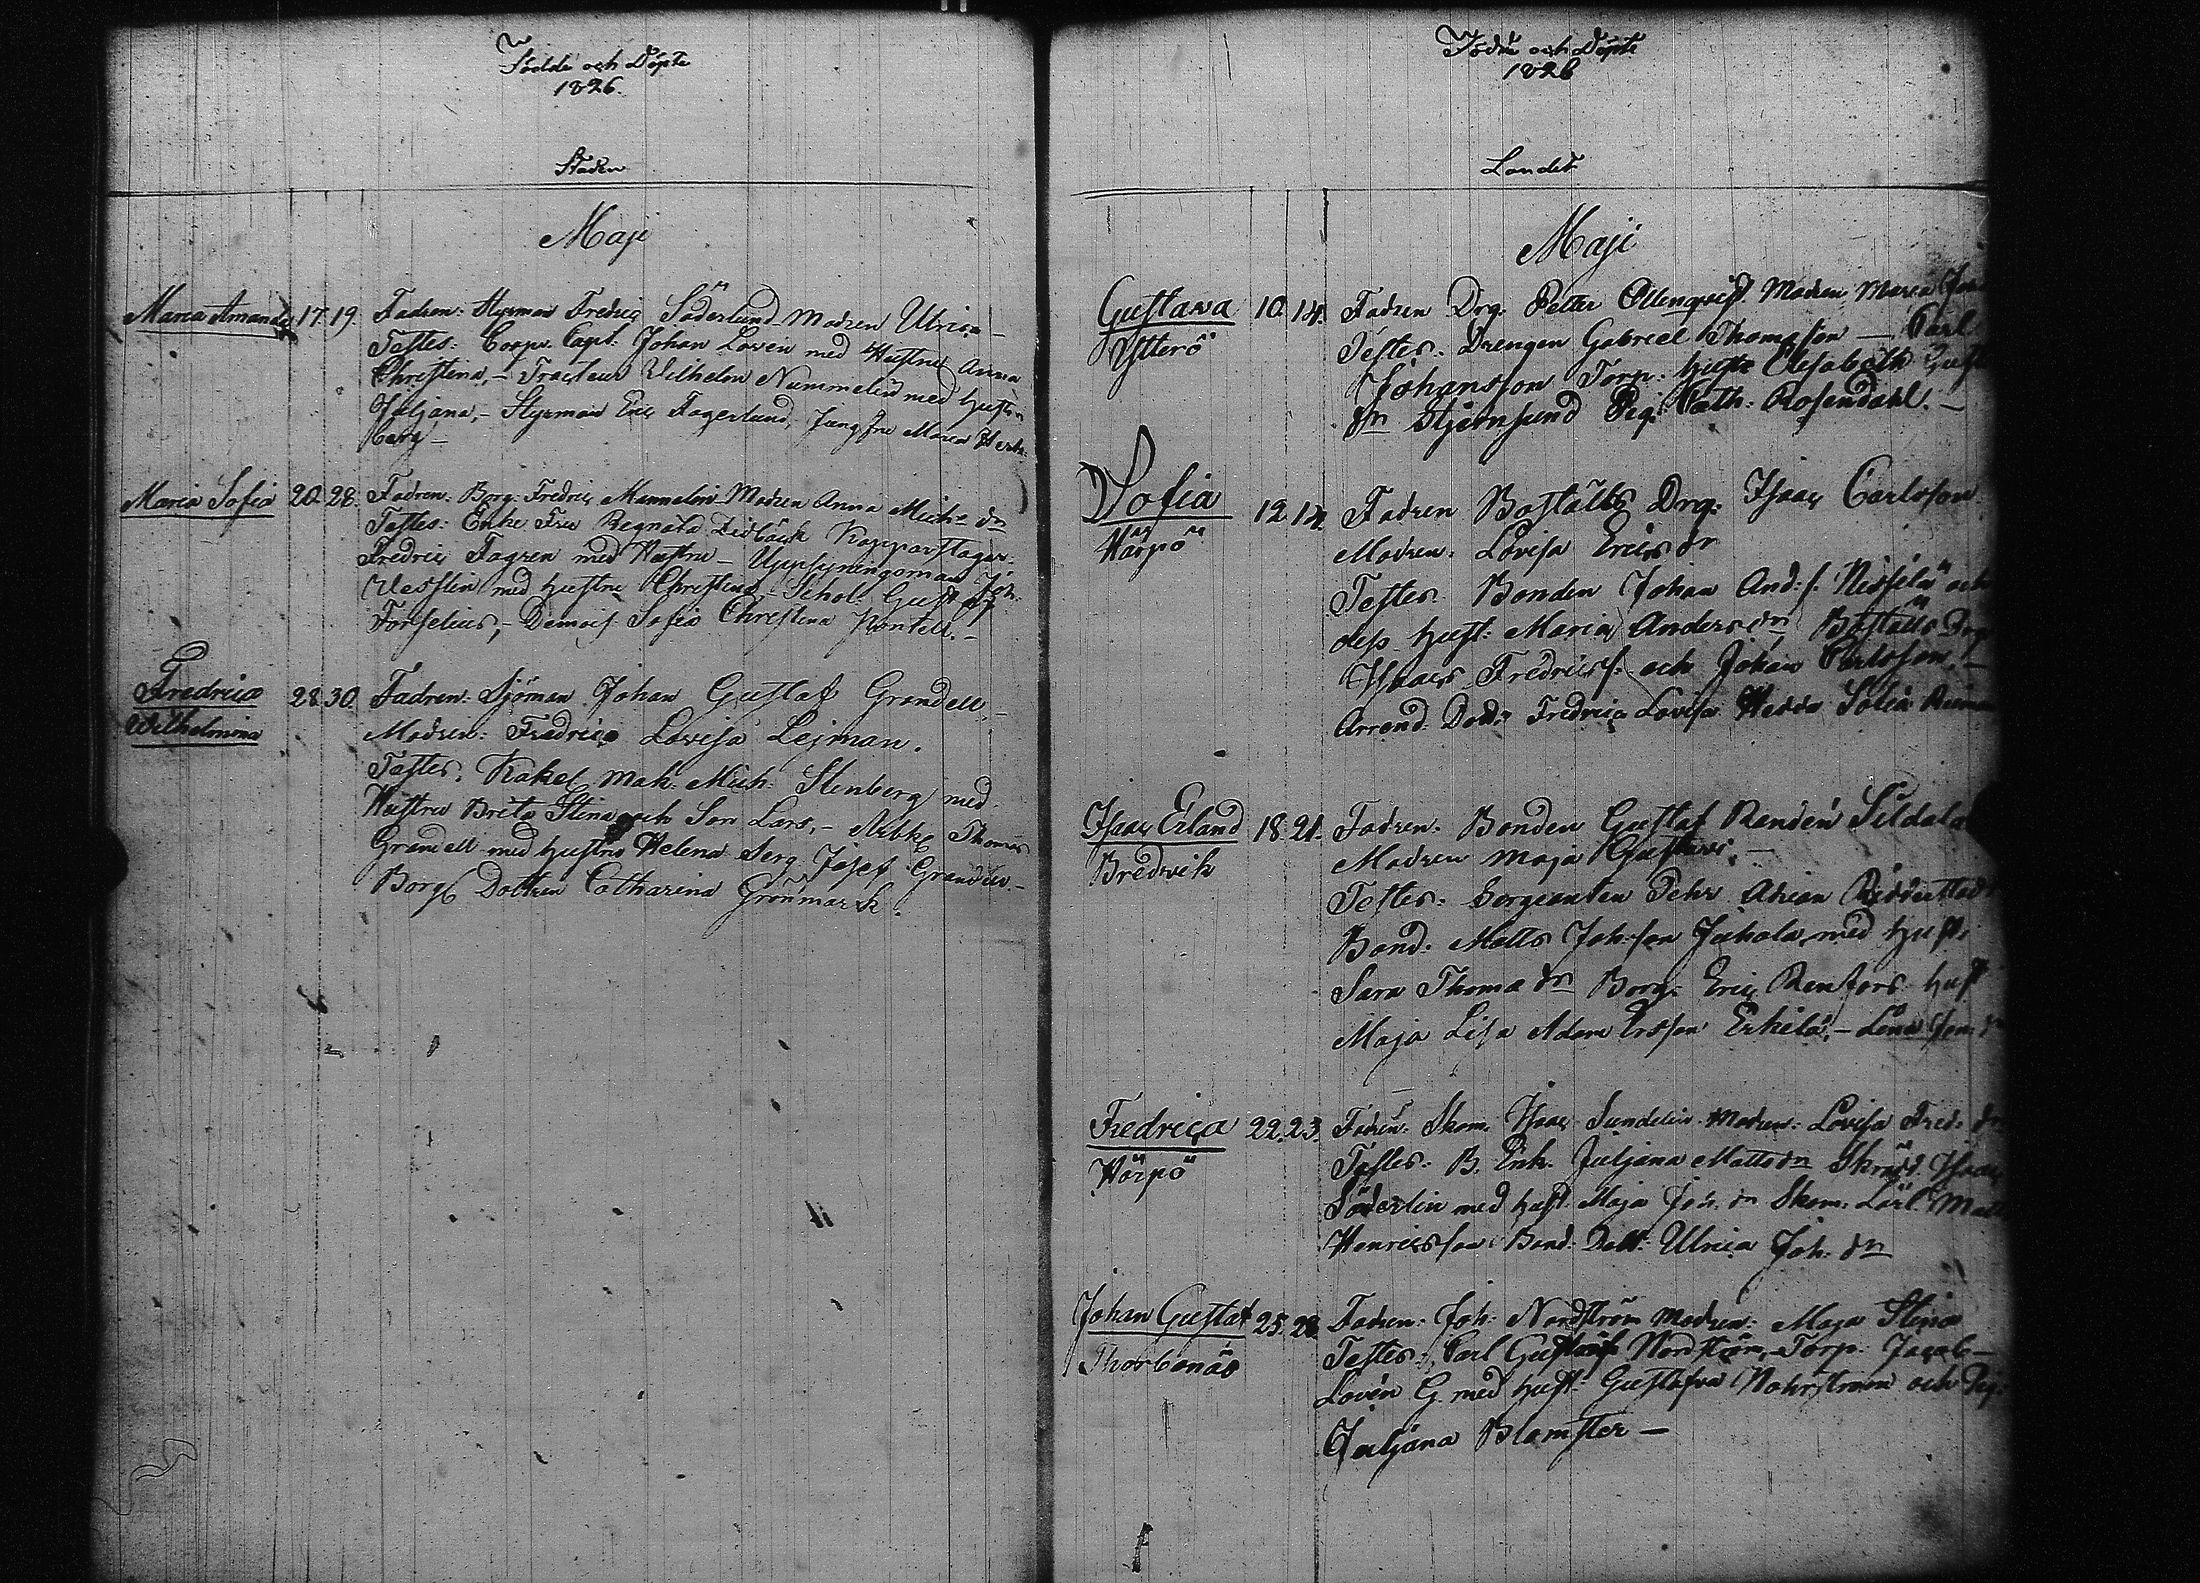 Födde och Döpte
1826.
Staden
Maji
Maria Amanda 17. 19. Fadren: Styrman Fredric Söderlund Modren Ulrica –
Testes: Coopv. Capt: Johan Loven med Hustru Anna
Christina, – Tracteur Vilhelm Nummelin med hustru
Juljana, – Styrman Eric Fagerlund, Jungfru Maria
berg –
Maria Sofia 20. 28. Fadren: Borg. Fredric Mannelin Modren Anna Mich: dn
Testes: Enke Fru Regnata Kopparslagar.
Fredric Fagren med Hustru – Uppsyningsman Joh:
Vesslin med hustru Christina, – Schol: Gustaf
Forselius, – Demois. Sofia Christina Kontell. –
Fredrica 28. 30. Fadren: Sjöman Johan Gustaf Grandell, –
Wilhelmina Modren: Fredrica Lovisa Lejman.
Testes. Kakel mak: Mich: Stenberg med
Hustru Brita Stina och Son Lars, – Thomas
Grandell med hustru Helena Serg. Josef Grandell –
Borg. Dottren Catharina Grönmark.
Födde och Döpte
1826
Landet
Maji
Gustava 10. 14. Fadren Drg. Petter Ollenqvist. Modren Maria
Ytterö Testes. Drengen Gabriel Thomasson – Carl
Johansson Torp: hustr Elisabeth
dn Stjernsund Pig. Cath: Rosendahl. –
Sofia 12. 14. Fadren Boställs Drg: Isaac Carlsson
Hörpö Modren: Lovisa Ericsdr
Testes. Bonden Johan And: s. och
dess hust: Maria Andersdn Boställs Drg
Isaac Fredrics: och Johan Carlsson, –
Arrend: Dott: Fredrica Lovisa Hedda Sofia
Isaac Erland 18. 21. Fadren. Bonden Gustaf Rendén Sildala
Bredvik Modren Maja –
Testes: Sergeanten Pehr Adrian
Bond: Matts Joh:son Juhola med hust:
Sara Thomædn Borg: Eric Renfors hust
Maja Lisa Adam Ersson Erkilä, – Lena
Fredrica 22. 23. Fadren. Skom. Isaac Sundelin Modren: Lovisa Fred: dn
Hörpö Testes: B. Enk. Juljana Mattsdn Skrädd. Isaac
Söderlin med hust. Maja Joh: dn Skom: Lärl. Matts
Henricsson Bond: Dott: Ulrica Joh: dn
Johan Gustaf 25. 28. Fadren: Joh: Nordström Modren: Maja Stina
Thorbonäs Testes: Carl Gustaf Nordström, Torp: Jacob –
Lovén G. med hust: Gustafva Nohrström och Pig:
Juljana Blomster –